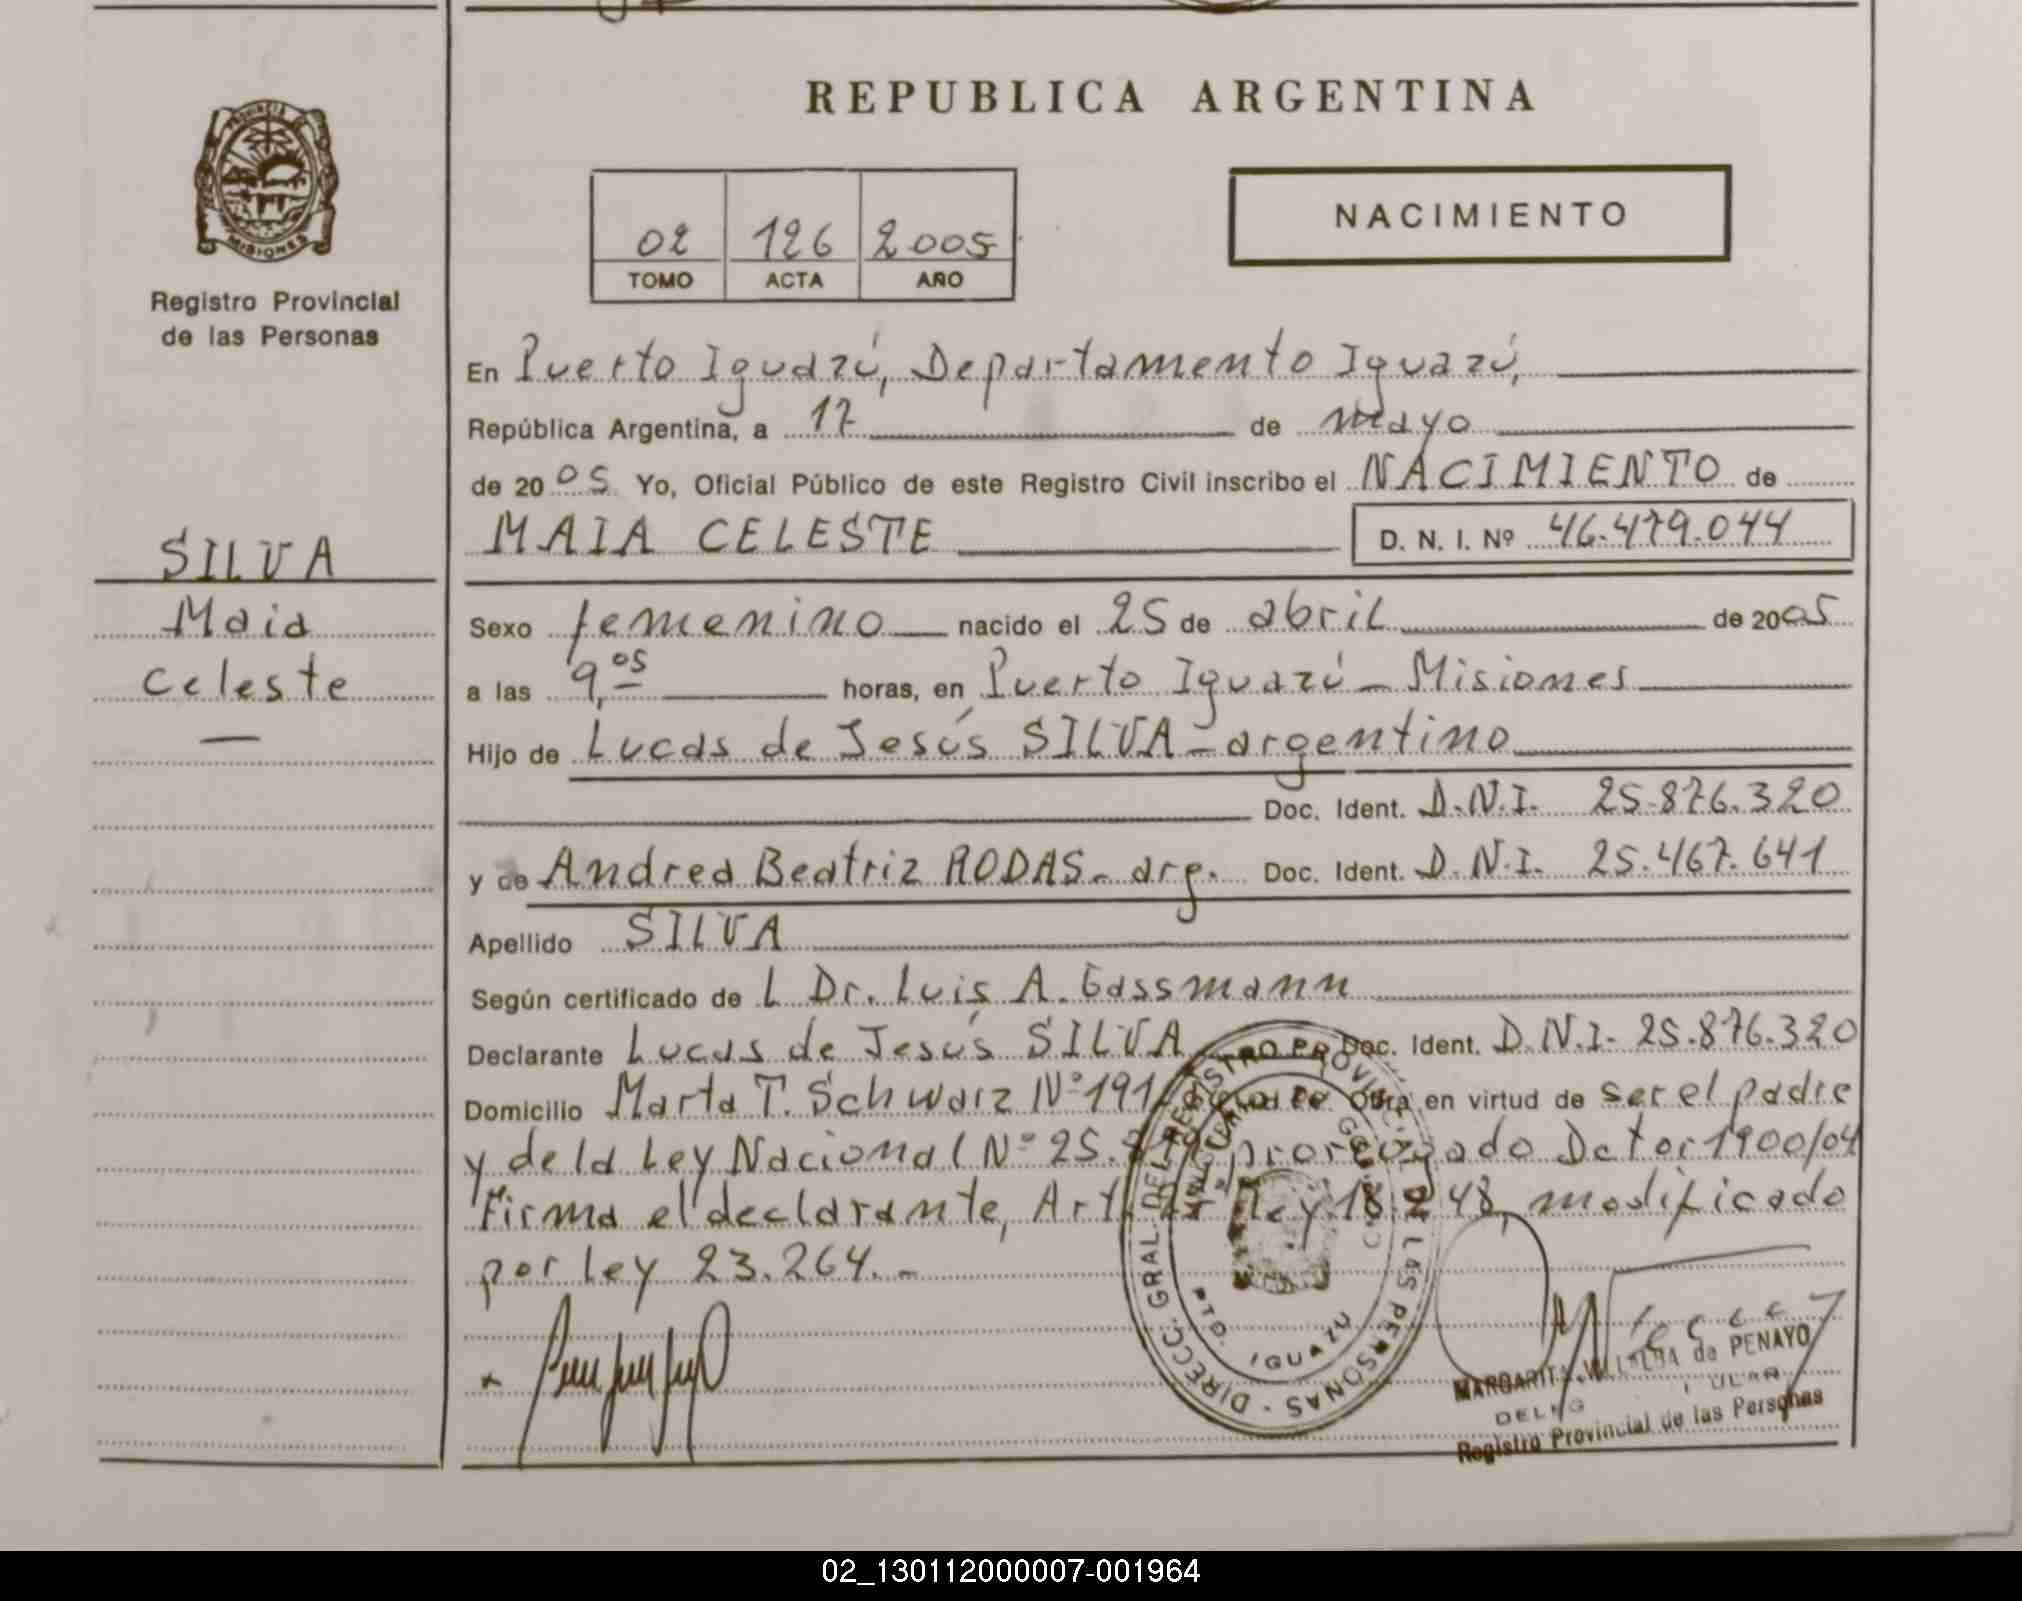 REPUBLICA ARGENTINA
PROVINCIA DE
MISIONES
Registro Provincial
de las Personas
02 126 2005
TOMO ACTA AÑO
NACIMIENTO
En Puerto Iguazú, Departamento Iguazú,
República Argentina, a 17 de mayo
de 2005 Yo, Oficial Público de este Registro Civil inscribo el NACIMIENTO de
MAIA CELESTE D. N. I. Nº 46.479.044
SILVA
Maia
Celeste
Sexo femenino nacido el 25 de abril de 2005
a las 9,05 horas, en Puerto Iguazú - Misiones
Hijo de Lucas de Jesús SILVA - argentino
Doc. Ident. D.N.I. 25.876.320
y de Andrea Beatriz RODAS - arg. Doc. Ident. D.N.I. 25.467.641
Apellido SILVA
Según certificado de L Dr. Luis A. Gassmann
Declarante Lucas de Jesús SILVA Doc. Ident. D.N.I. 25.876.320
Domicilio Marta T. Schwarz Nº 191 Obra en virtud de ser el padre
y de la Ley Nacional Nº 25. prorrogado Dcto: 1900/04
Firma el declarante, Art. Ley 18.248, modificado
por ley 23.264.-
DIRECC. GRAL. DEL REGISTRO PROVINCIAL DE LAS PERSONAS
PTO. IGUAZU
MARGARITA VILLALBA de PENAYO
Registro Provincial de las Personas
02_130112000007-001964